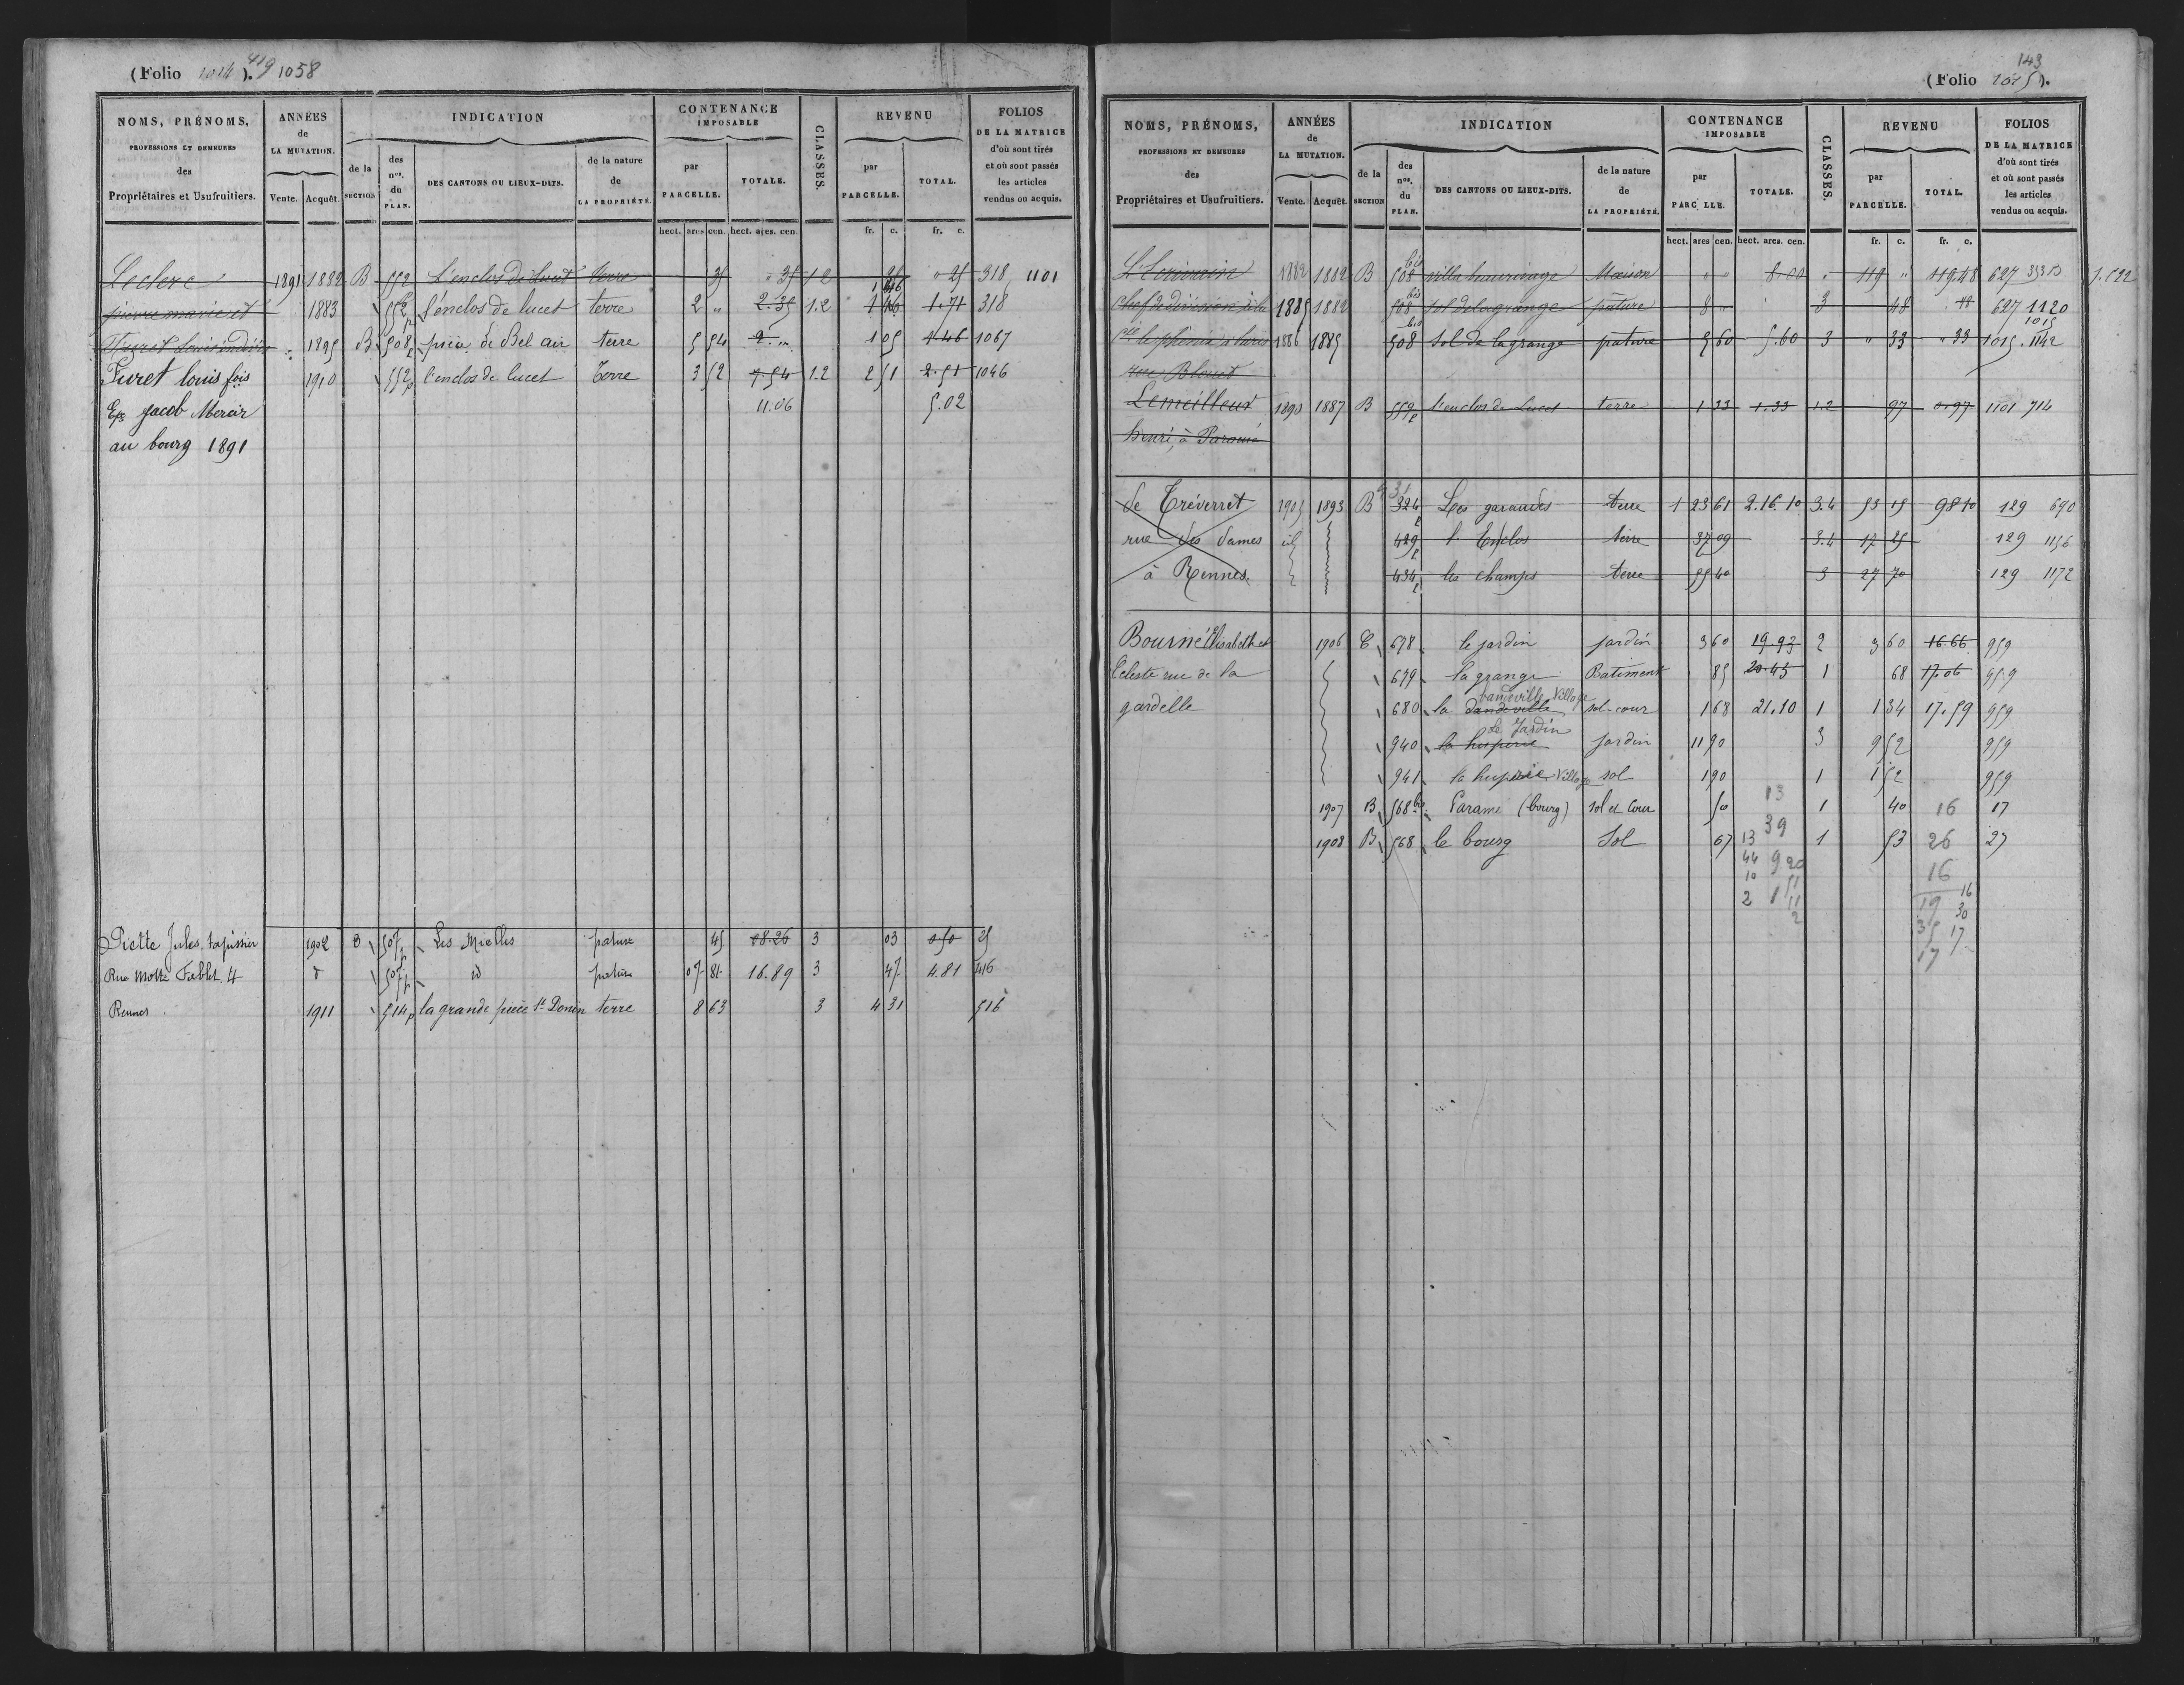 (Folio 1014). 419 1058
NOMS, PRÉNOMS, PROFESSIONS ET DEMEURES des Propriétaires et Usufruitiers. | ANNÉES de LA MUTATION. Vente. Acquêt. | INDICATION de la SECTION des nos. du PLAN. DES CANTONS OU LIEUX-DITS. de la nature de LA PROPRIÉTÉ. | CONTENANCE IMPOSABLE par PARCELLE. TOTALE. | CLASSES. | REVENU par PARCELLE. TOTAL. | FOLIOS DE LA MATRICE d'où sont tirés et où sont passés les articles vendus ou acquis.
hect. ares cen. hect. ares. cen. fr. c. fr. c.
Leclerc 1891 1882 B 552 L'enclos de lucet terre 35 " 35 1.2 25 " 25 318 1101
pierre marie et 1883 552 p l'enclos de lucet terre 2 " 2.35 1.2 1 46 1.71 318
Furet Louis 1895 B 508 p pièce de Bel air terre 5 54 2 " 1 05 1.46 1067
Furet louis fois 1910 552 p l'enclos de lucet terre 3 52 7.54 1.2 2 51 2.51 1046
Eps Jacob Mercir 11.06 5.02
au bourg 1891
Piette Jules, tapissier 1902 B 507 p Les Mielles pature 45 08.26 3 03 0.50 25
Rue Motte Fablet. 4 d 507 p id pature 07 81 16.89 3 47 4.81 416
Rennes 1911 514 p la grande pièce St Donin terre 8 63 3 4 31 516
143
(Folio 1015).
NOMS, PRÉNOMS, PROFESSIONS ET DEMEURES des Propriétaires et Usufruitiers. | ANNÉES de LA MUTATION. Vente. Acquêt. | INDICATION de la SECTION des nos. du PLAN. DES CANTONS OU LIEUX-DITS. de la nature de LA PROPRIÉTÉ. | CONTENANCE IMPOSABLE par PARC LLE. TOTALE. | CLASSES. | REVENU par PARCELLE. TOTAL. | FOLIOS DE LA MATRICE d'où sont tirés et où sont passés les articles vendus ou acquis.
hect. ares cen. hect. ares. cen. fr. c. fr. c.
1882 1882 B 508 bis villa Maison " " 8.00 " 119 " 119.48 627
chef de division à la 1885 1882 508 bis sol de la grange pâture 8 " 3 48 627 1120
Cie le phénix à Paris 1886 1885 508 bis sol de la grange pature 5 60 5.60 3 " 33 " 33 1015 1142
rue Blouet
Lemeilleur 1890 1887 B 552 p l'enclos de Lucet terre 1 33 1.33 1.2 97 0.97 1101 714
henri, à Paramé
de Tréverret 1905 1893 B 324 p Les garaudes terre 1 23 61 2.16.10 3.4 53 15 98 10 129 690
rue des dames id 429 p l'Enclos terre 37 09 3.4 17 25 129 1156
à Rennes. 434 p les champs terre 55 40 3 27 70 129 1172
Bourné Elisabeth et 1906 C 678 le jardin jardin 3 60 19.93 2 3 60 16.66 959
Céleste rue de la 679 la grange Batiment 85 20.43 1 68 17.06 959
gardelle 680 la dandeville Village sol-cour 1 68 21.10 1 1 34 17.59 959
940 le Jardin jardin 11 90 3 9 52 959
941 la huperie Village sol 1 90 1 1 52 959
1907 B 568 bis Paramé (bourg) sol et Cour 50 13 1 40 16 17
1908 B 568 le bourg Sol 67 13 39 1 53 26 27
44 9.20 16
10 51
2 1 11 19 16
2 30
35 17
17